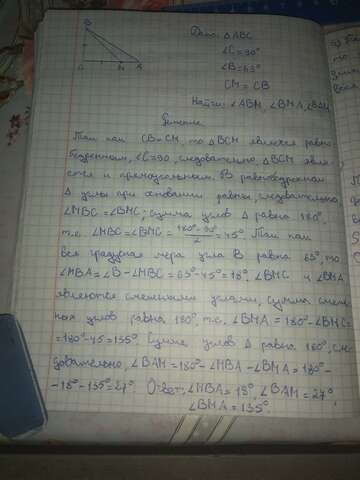 Дано: △ABC
∠C=90°
∠B=63°
CM = CB
Найти: ∠ABM, ∠BMA, ∠BAM
Решение
B
C
M
A
Так как CB=CM, то △BCM является равно-
бедренным, ∠C=90, следовательно, △BCM явля-
ется и прямоугольным. В равнобедренном
△ углы при основании равны, следовательно,
∠MBC = ∠BMC; сумма углов △ равна 180°,
т.е. ∠MBC=∠BMC= 180°-90°/2 = 45°. Так как
вся градусная мера угла B равна 63°, то
∠MBA=∠B-∠MBC=63°-45°=18°. ∠BMC и ∠BMA
являются смежными углами, сумма смеж-
ных углов равна 180°, т.е. ∠BMA=180°-∠BMC=
=180°-45=135°. Сумма углов △ равна 180°, сле-
довательно, ∠BAM=180°-∠MBA-∠BMA=180°-
-18°-135°=27°. Ответ: ∠MBA=18°, ∠BAM=27°,
∠BMA=135°.